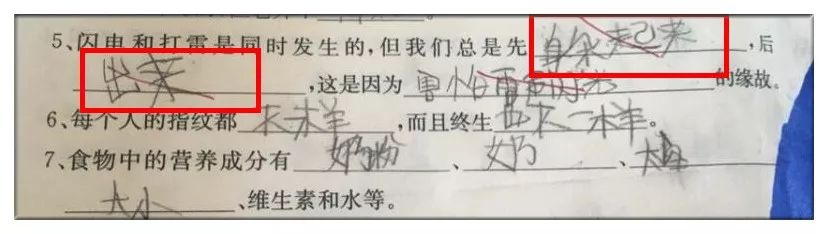 5、闪电和打雷是同时发生的,但我们总是先 身朵起来 ,后
出来 ,这是因为 害怕雷 的缘故。
6、每个人的指纹都 不一样 ,而且终生 也不一样 。
7、食物中的营养成分有 奶粉 、 奶 、
大小 、维生素和水等。